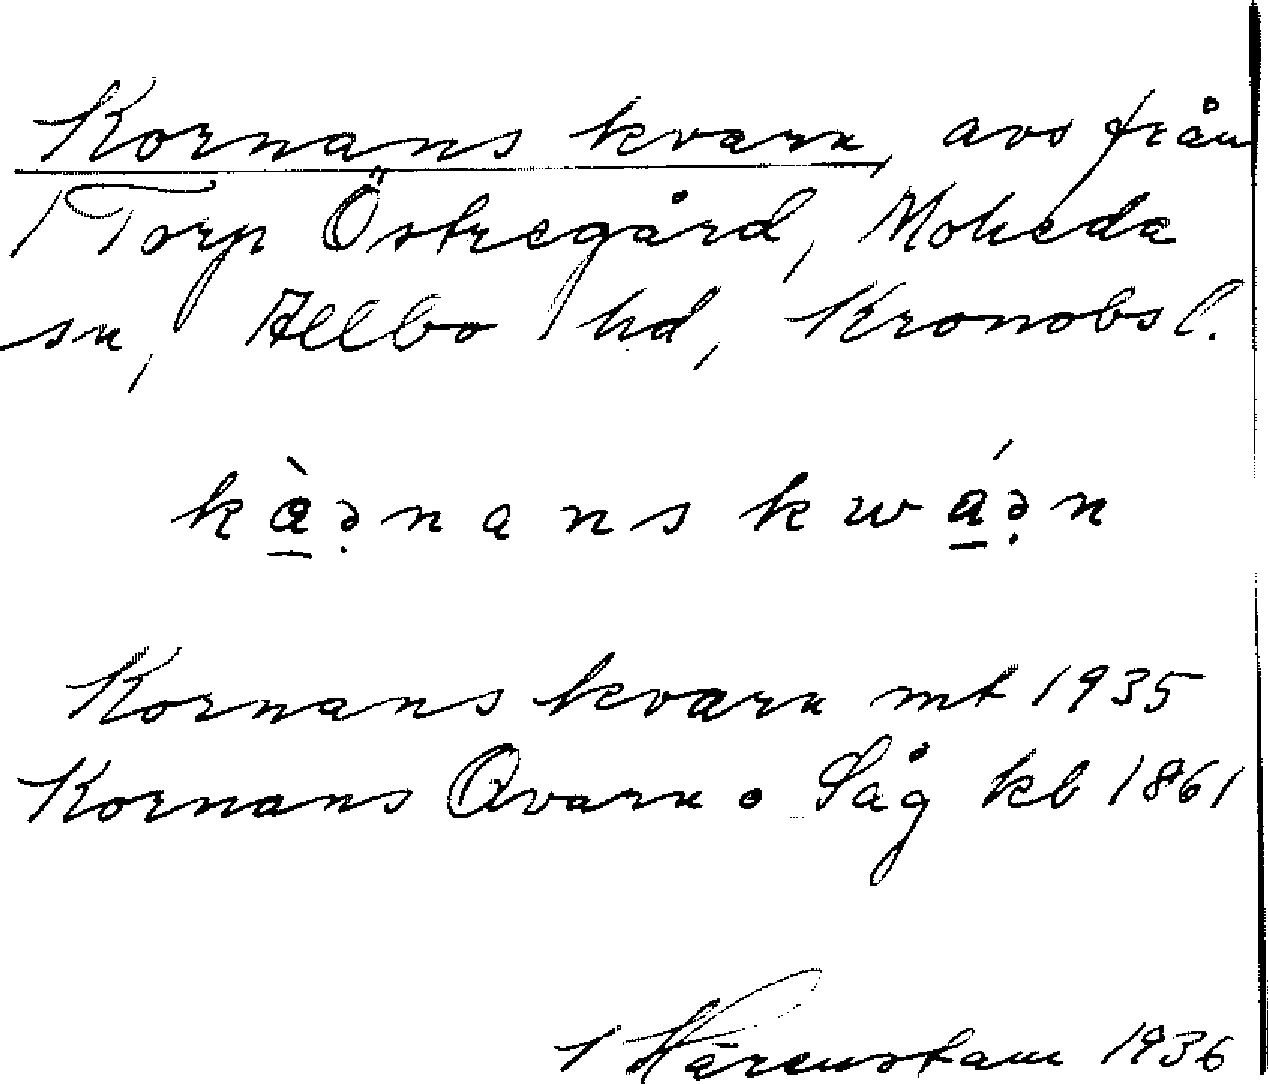 Kornans kvarn, avs från
1 Torp Östregård, Moheda
sn, Allbo hd, Kronobs l.
kàə̣nans kwáə̣n
Kornans kvarn mt 1935
Kornans Qvarn o Såg kb 1861
1936